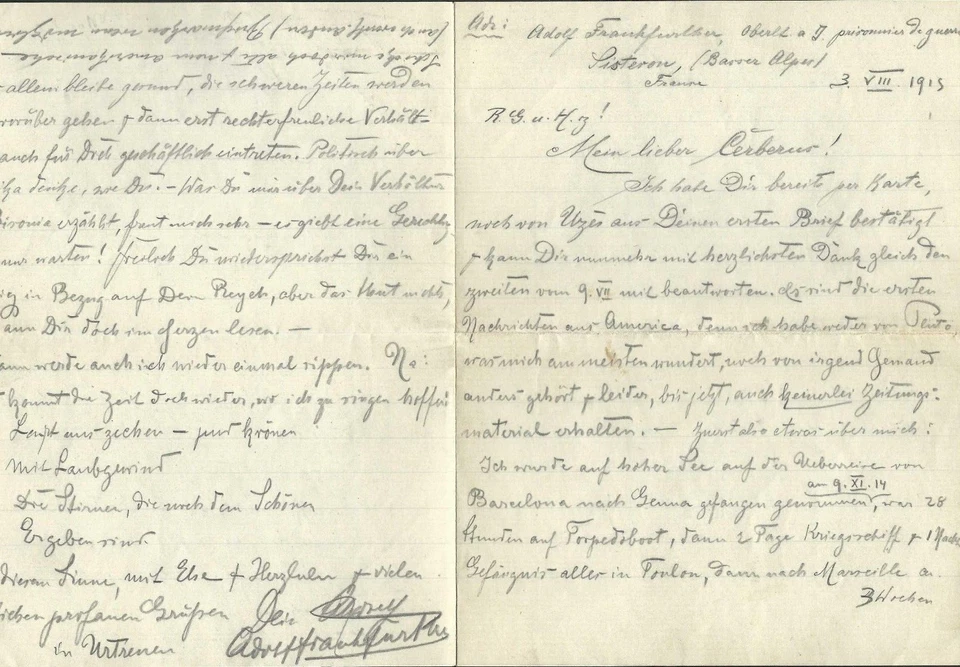 Adr: Adolf Frankfurther, Oberlt a D. prisonnier de guerre
Sisteron, (Basses Alpes)
France
3. VIII. 1915
R. G. u. H. z!
Mein lieber Cerberus!
Ich habe Dir bereits per Karte,
noch von Uzès aus Deinen ersten Brief bestätigt
& kann Dir nunmehr mit herzlichsten Dank gleich den
zweiten vom 9. VII mit beantworten. Es sind die ersten
Nachrichten aus America, denn ich habe weder von Pluto,
was mich am meisten wundert, noch von irgend Jemand
anders gehört & leider, bis jetzt, auch keinerlei Zeitungs-
material erhalten. — Zuerst also etwas über mich:
Ich wurde auf hoher See auf der Ueberreise von
am 9. XI. 14
Barcelona nach Genua gefangen genommen, war 28
Stunden auf Torpedoboot, dann 2 Tage Kriegsschiff & 1 Nacht
Gefängnis alles in Toulon, dann nach Marseille a.
3 Wochen
allem bleibe gesund, die schweren Zeiten werden
vorüber gehen & dann erst recht erfreuliche Verhält-
auch für Dich geschäftlich eintreten. Politisch über
wie Du. — Was Du mir über Dein Verhältnis
erzählt, freut mich sehr — es giebt eine
nur warten! Freilich Du wiedersprichst Dir ein
in Bezug auf Dein Reych, aber das thut nichts,
kann Dir doch im Herzen lesen. —
dann werde auch ich wieder einmal sippen. Na:
kommt die Zeit doch wieder, wo ich zu singen hoffe:
Laßt uns ziehen — und krönen
Mit Laubgewind
Die Stirnen, die noch dem Schönen
Ergeben sind
diesem Sinne, mit Else & Herzlulu & vielen
lichen profanen Grüßen Dein
in Urtreuen Adolf Frankfurther